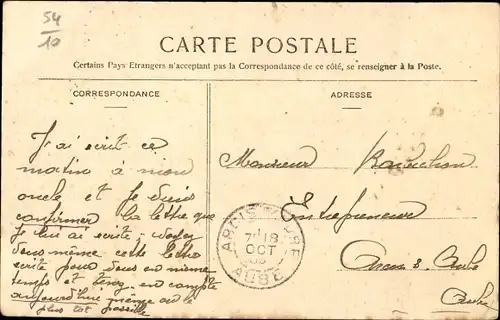 54
10
CARTE POSTALE
Certains Pays Etrangers n'acceptant pas la Correspondance de ce côté, se renseigner à la Poste.
CORRESPONDANCE
J'ai écrit ce
matin à mon
oncle et je suis
confirmer la lettre que
je lui ai écrite ; voyez
vous même cette lettre
écrite pour vous en même
temps et tenez en compte
aujourd'hui même ou le
plus tôt possible
ADRESSE
Monsieur
Entrepreneur
Aube
Aube
7H 18
OCT
AUBE